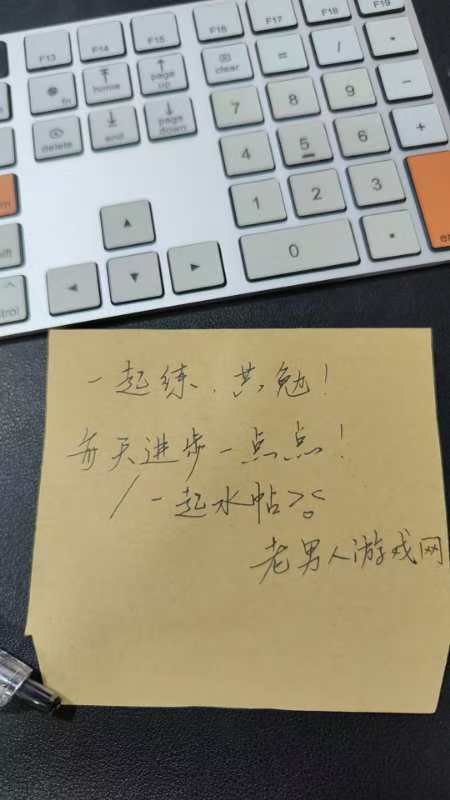 F13 F14 F15 F16 F17 F18 F19
fn home page up clear = / *
delete end page down 7 8 9 −
4 5 6 +
1 2 3
▲
0 .
◀ ▼ ▶
一起练，共勉！
每天进步一点点！
/一起水帖>。<
老男人游戏网